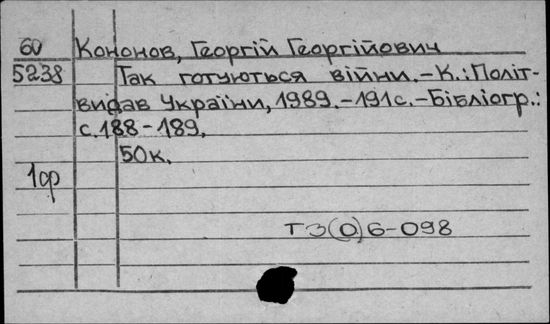 60 Кононов, Георгій Георгійович
5238 Так готуються війни.-К.:Політ-
видав України, 1989.-191с.-Бібліогр.:
с.188-189.
50к.
1ф
Т3(0)6-098